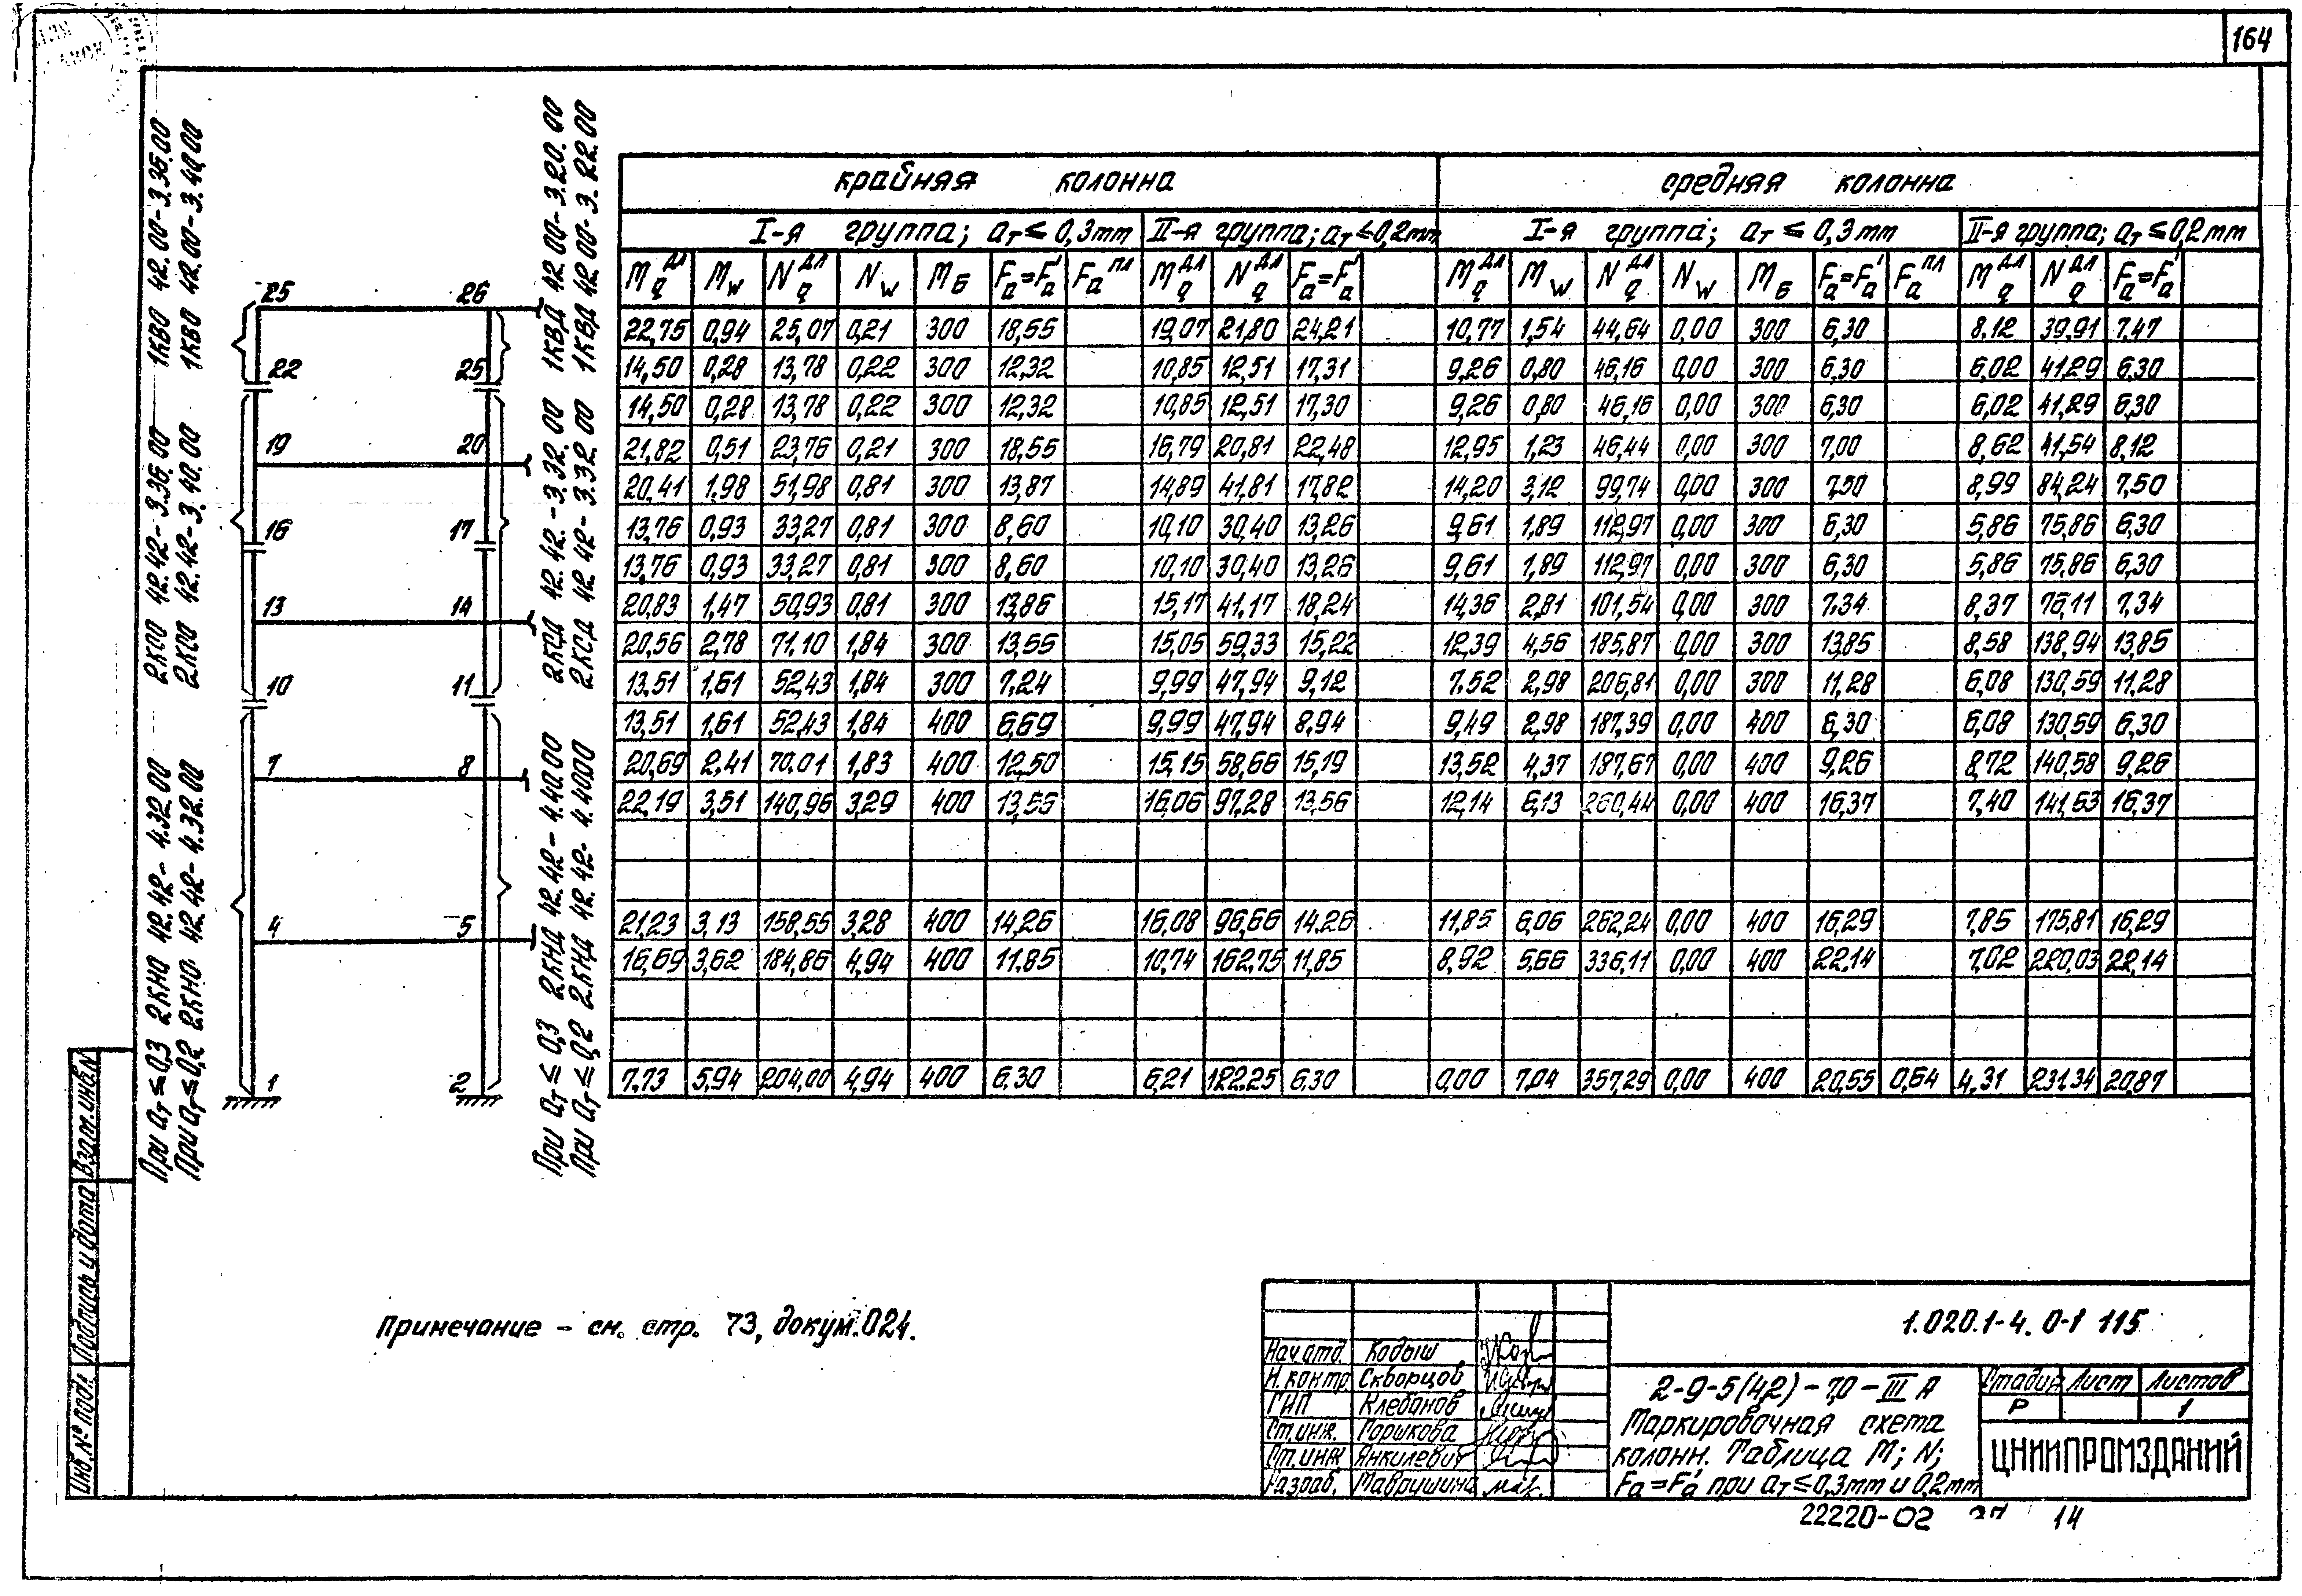 164
1КВО 42.00-3.36.00
1КВО 42.00-3.40.00
2КСО 42.42-3.36.00
2КСО 42.42-3.40.00
При aт ≤ 0,3 2КНО 42.42-4.32.00
При aт ≤ 0,2 2КНО 42.42-4.32.00
1КВД 42.00-3.20.00
1КВД 42.00-3.22.00
2КСД 42.42-3.32.00
2КСД 42.42-3.32.00
При aт ≤ 0,3 2КНД 42.42-4.40.00
При aт ≤ 0,2 2КНД 42.42-4.40.00
25 26
22 25
19 20
16 17
13 14
10 11
7 8
4 5
1 2
крайняя колонна средняя колонна
I-я группа; aт ≤ 0,3mm II-я группа; aт ≤ 0,2mm I-я группа; aт ≤ 0,3mm II-я группа; aт ≤ 0,2mm
Mq^дл Mw Nq^дл Nw Mб Fa=F'a Fa^пл Mq^дл Nq^дл Fa=F'a Mq^дл Mw Nq^дл Nw Mб Fa=F'a Fa^пл Mq^дл Nq^дл Fa=F'a
22,75 0,94 25,07 0,21 300 18,55 19,07 21,80 24,21 10,77 1,54 44,64 0,00 300 6,30 8,12 39,91 7,47
14,50 0,28 13,78 0,22 300 12,32 10,85 12,51 17,31 9,26 0,80 46,16 0,00 300 6,30 6,02 41,29 6,30
14,50 0,28 13,78 0,22 300 12,32 10,85 12,51 17,30 9,26 0,80 46,16 0,00 300 6,30 6,02 41,29 6,30
21,82 0,51 23,76 0,21 300 18,55 16,79 20,81 22,48 12,95 1,23 46,44 0,00 300 7,00 8,62 41,54 8,12
20,41 1,98 51,98 0,81 300 13,87 14,89 41,81 17,82 14,20 3,12 99,74 0,00 300 7,50 8,99 84,24 7,50
13,76 0,93 33,27 0,81 300 8,60 10,10 30,40 13,26 9,61 1,89 112,97 0,00 300 6,30 5,86 75,86 6,30
13,76 0,93 33,27 0,81 300 8,60 10,10 30,40 13,26 9,61 1,89 112,97 0,00 300 6,30 5,86 75,86 6,30
20,83 1,47 50,93 0,81 300 13,86 15,17 41,17 18,24 14,36 2,81 101,54 0,00 300 7,34 8,37 76,11 7,34
20,56 2,78 71,10 1,84 300 13,55 15,05 59,33 15,22 12,39 4,56 185,87 0,00 300 13,85 8,58 138,94 13,85
13,51 1,61 52,43 1,84 300 7,24 9,99 47,94 9,12 7,52 2,98 206,81 0,00 300 11,28 6,08 130,59 11,28
13,51 1,61 52,43 1,84 400 6,69 9,99 47,94 8,94 9,49 2,98 187,39 0,00 400 6,30 6,08 130,59 6,30
20,69 2,41 70,01 1,83 400 12,50 15,15 58,66 15,19 13,52 4,37 187,67 0,00 400 9,26 8,72 140,58 9,26
22,19 3,51 140,96 3,29 400 13,56 16,06 97,28 13,56 12,14 6,13 260,44 0,00 400 16,37 7,40 141,63 16,37
21,23 3,13 158,55 3,28 400 14,26 16,08 96,66 14,26 11,85 6,06 262,24 0,00 400 16,29 7,85 175,81 16,29
16,69 3,62 184,86 4,94 400 11,85 10,74 162,75 11,85 8,92 5,66 336,11 0,00 400 22,14 7,02 220,03 22,14
7,73 5,94 204,00 4,94 400 6,30 6,21 122,25 6,30 0,00 7,04 357,29 0,00 400 20,55 0,64 4,31 231,34 20,87
Примечание - см. стр. 73, докум.024.
Взам.инв.№
Подпись и дата
Инв.№ подл.
Нач.отд. Кодыш
Н.контр Скворцов
ГИП Клебанов
Ст.инж. Горшкова
Ст.инж Янкилевич
Разраб. Маврушина
1.020.1-4. 0-1 115
2-9-5(4,2)-7,0-III А
Маркировочная схема
колонн. Таблица M; N;
Fa=F'a при aт≤0,3mm и 0,2mm
Стадия Лист Листов
Р 1
ЦНИИПРОМЗДАНИЙ
22220-02 14